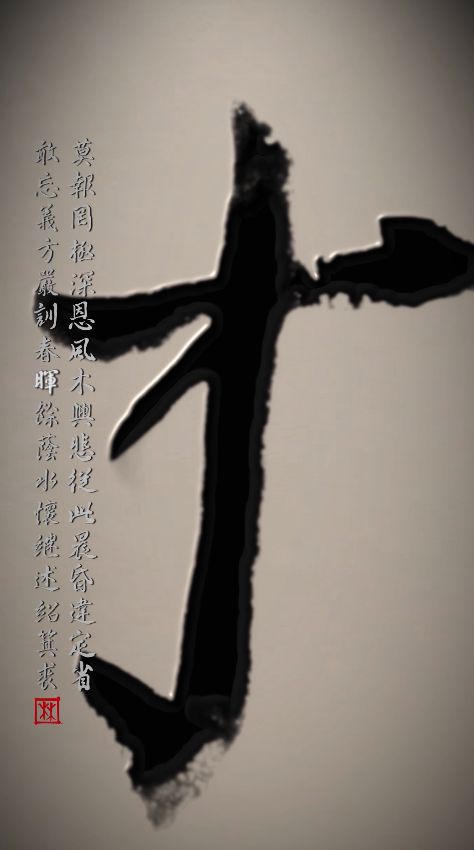 才
莫報罔極深恩風木興悲從此晨昏違定省
敢忘義方嚴訓春暉餘蔭永懷繼述紹箕裘
林